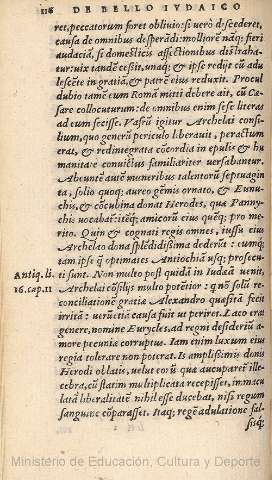 116 DE BELLO IVDAICO
ret, peccatorum foret obliuio: si uerò discederet,
causa de omnibus desperādi: moliorē náq; fieri
audaciā, si domesticis affectionibus distraha-
tur: uix tandē cessit, unaq; & ipse redijt cū adu
lescēte in gratiā, & patrē eius reduxit. Procul
dubio tamē eum Romā mitti debere ait, cū Cæ-
sare collocuturum: de omnibus enim sese literas
ad eum fecisse. Vafrū igitur Archelai consi-
lium, quo generū periculo liberauit, peractum
erat, & redintegrata cōcordia in epulis & hu
manitate conuictus familiariter uersabantur.
Abeuntē autē muneribus talentorū septuagin
ta, solio quoq; aureo gēmis ornato, & Eunu-
chis, & cōcubina donat Herodes, quæ Panny-
chis uocabat: itēq; amicorū eius quēq; pro me
rito. Quin & cognati regis omnes, iussu eius
Archelao dona splēdidissima dederūt: cumq;
tam ipse q̄ optimates Antiochiā usq; prosecu-
Antiq. li. ti sunt. Non multo post quidā in Iudæā uenit,
16. cap. 11 Archelai cōsilijs multo potētior: q nō solū re-
conciliationē gratiæ Alexandro quæsitā fecit
irritā: uerū etiā causa fuit ut periret. Laco erat
genere, nomine Eurycles, ad regni desideriū a-
more pecuniæ corruptus. Iam enim luxum eius
regia tolerare non poterat. Is amplissimis donis
Herodi oblatis, uelut eorū quæ aucuparet ille-
cebra, cū statim multiplicata recepisset, immacu
latā liberalitatē nihil esse ducebat, nisi regum
sanguine cōparasset. Itaq; regē adulatione fal-
sisq;
Ministerio de Educación, Cultura y Deporte